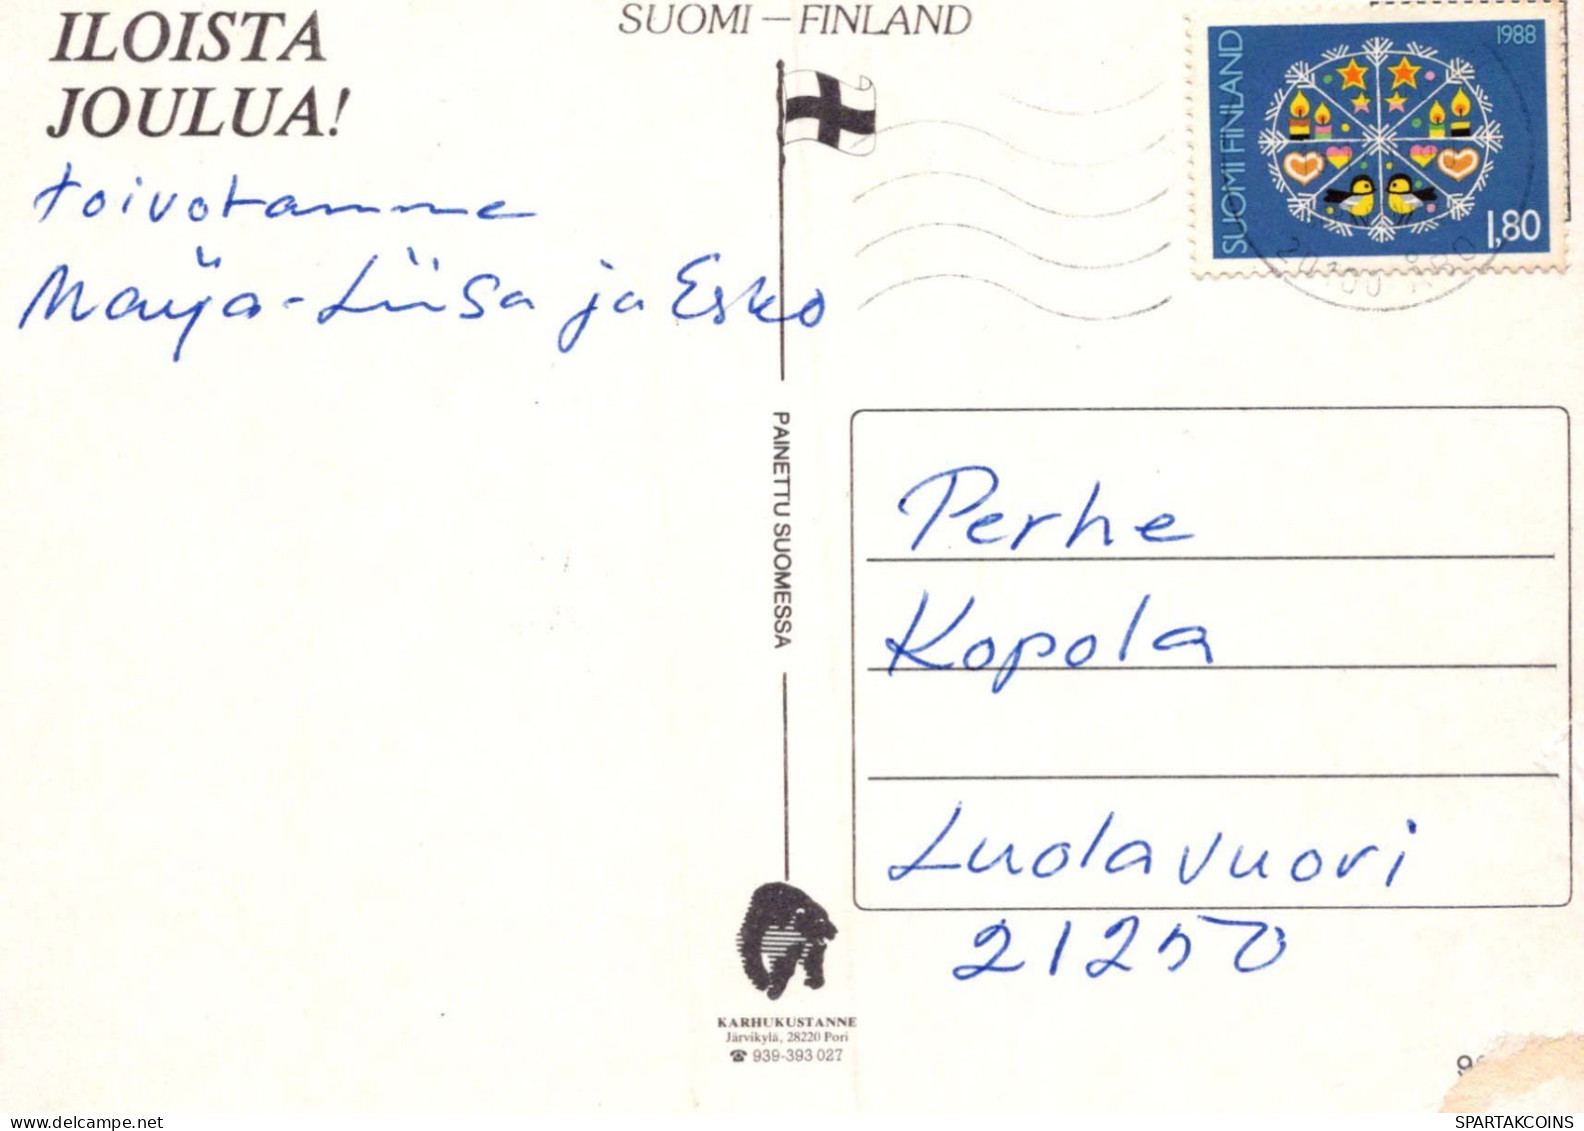 ILOISTA
JOULUA!
toivotamme
Maija-Liisa ja Esko
SUOMI – FINLAND
SUOMI FINLAND
1988
1,80
20100 ÅBO
PAINETTU SUOMESSA
Perhe
Kopola
Luolavuori
21250
KARHUKUSTANNE
Järvikylä, 28220 Pori
☎ 939-393 027
delcampe.net
SPARTAKCOINS